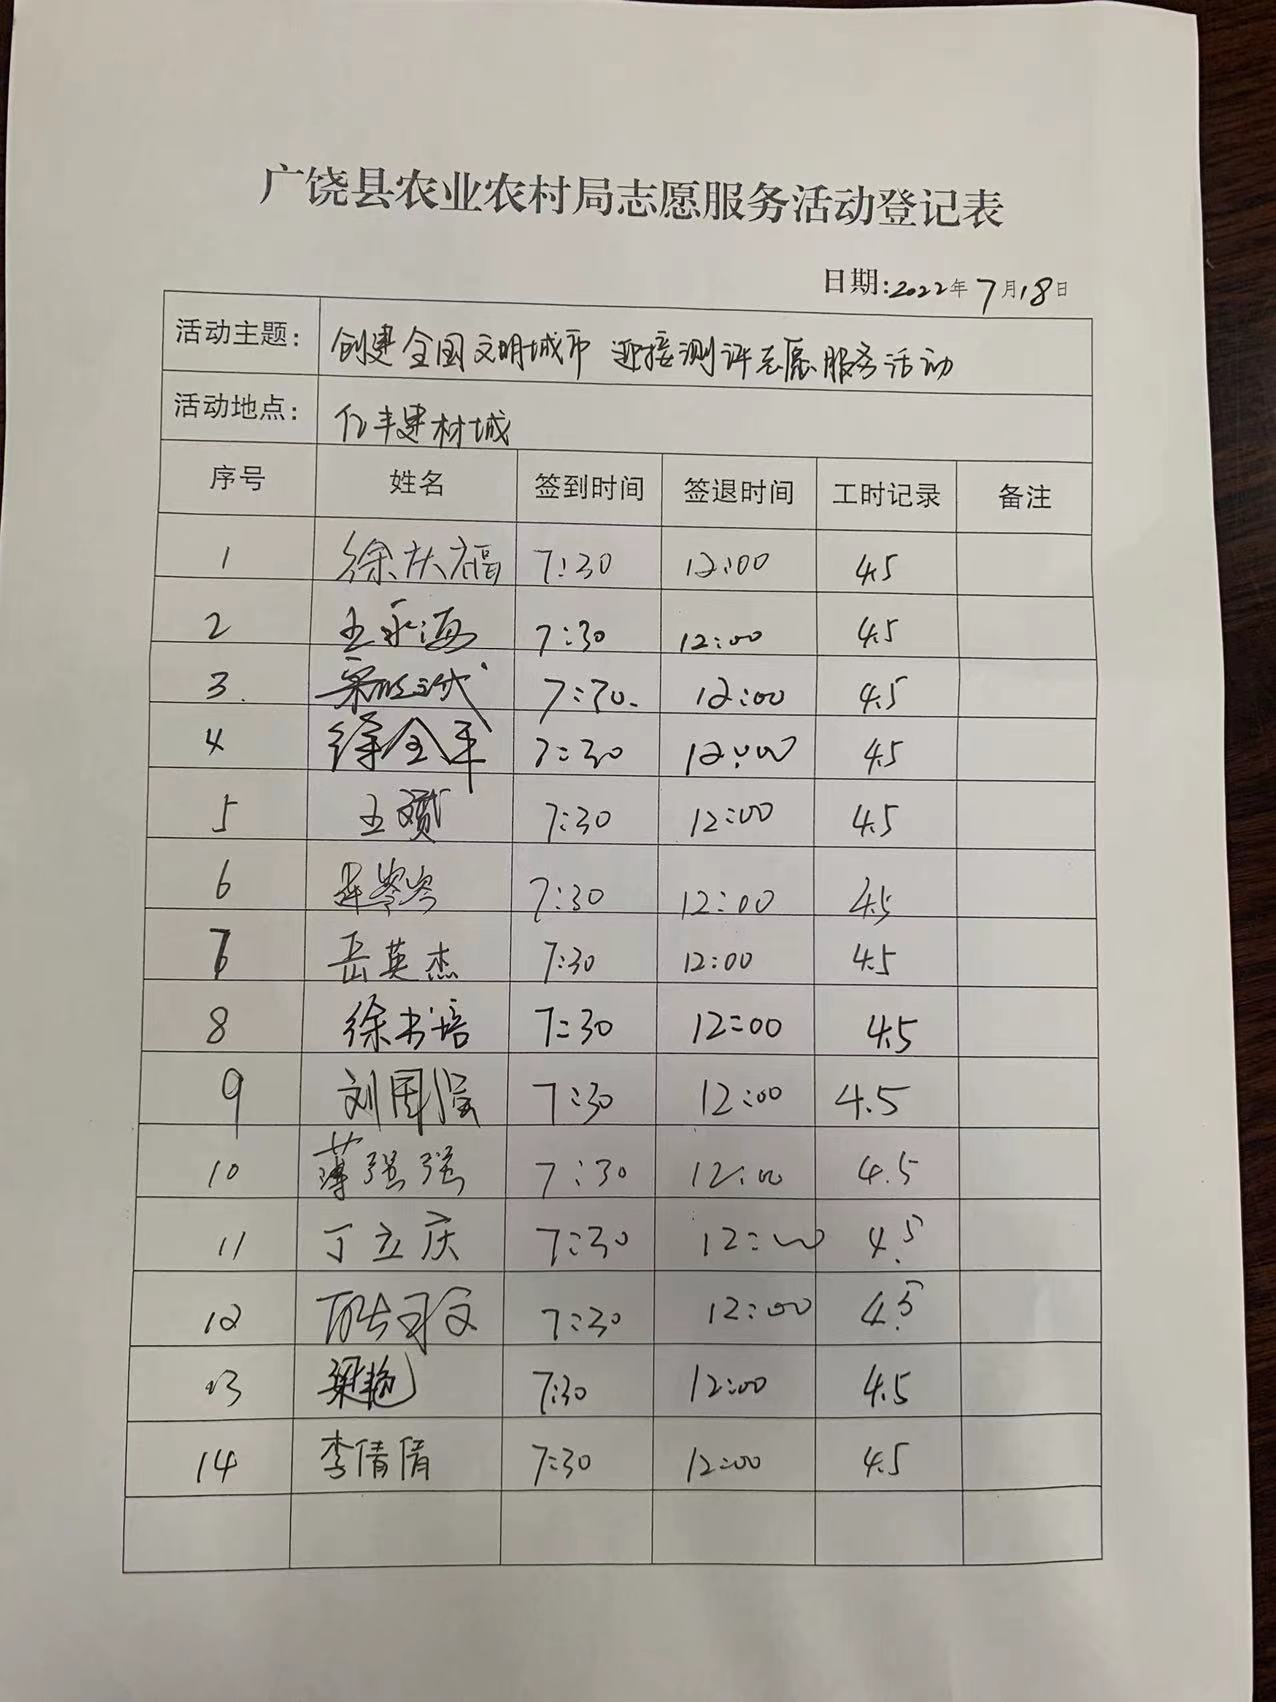 广饶县农业农村局志愿服务活动登记表
日期:2022年7月18日
活动主题: 创建全国文明城市 迎接测评志愿服务活动
活动地点: 亿丰建材城
序号 姓名 签到时间 签退时间 工时记录 备注
1 徐庆福 7:30 12:00 4.5
2 王永海 7:30 12:00 4.5
3. 7:30. 12:00 4.5
4 徐金平 7:30 12:00 4.5
5 王赟 7:30 12:00 4.5
6 7:30 12:00 4.5
7 岳英杰 7:30 12:00 4.5
8 徐书培 7:30 12:00 4.5
9 刘国强 7:30 12:00 4.5
10 薄强强 7:30 12:00 4.5
11 丁立庆 7:30 12:00 4.5
12 7:30 12:00 4.5
13 梁艳 7:30 12:00 4.5
14 李倩倩 7:30 12:00 4.5